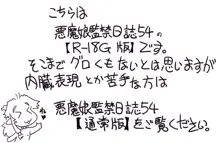 こちらは
悪魔娘監禁日誌54の
【R-18G版】です。
そこまでグロくもないとは思いますが
内臓表現とか苦手な方は
悪魔娘監禁日誌54
【通常版】をご覧ください。